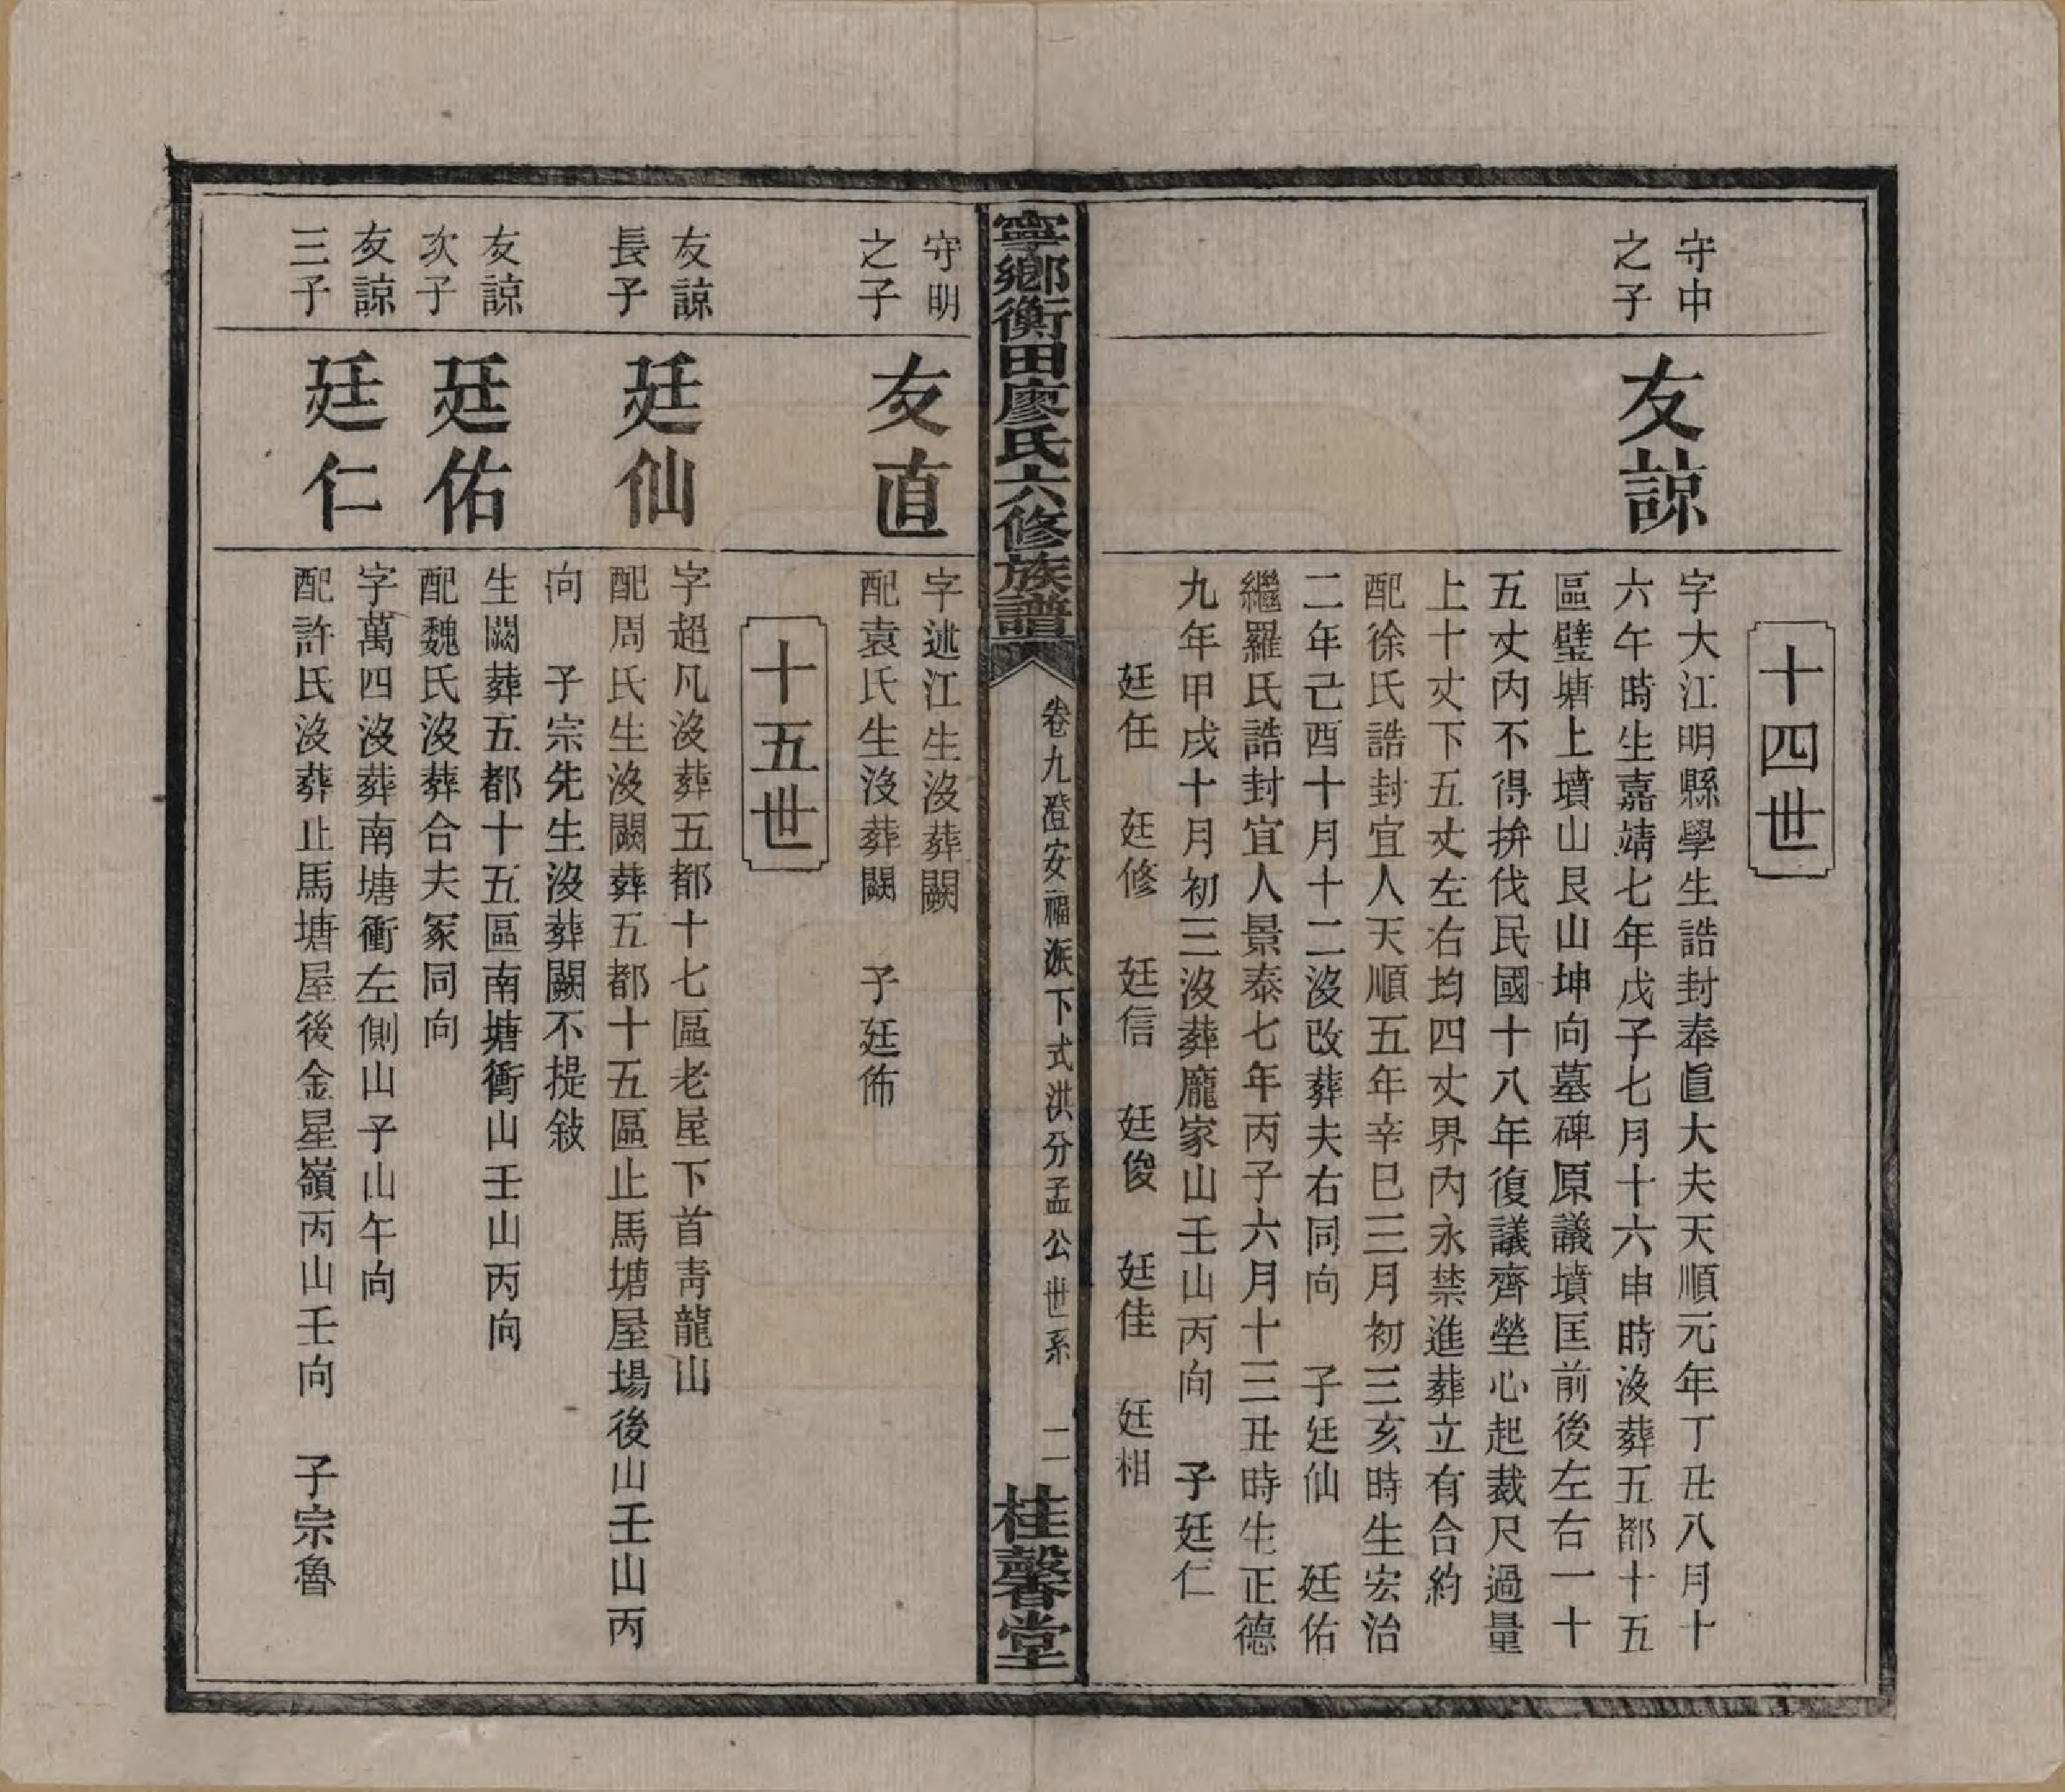 十四世
守中
之子
友諒
字大江明縣學生誥封奉直大夫天順元年丁丑八月十
六午時生嘉靖七年戊子七月十六申時沒葬五都十五
區璧塘上墳山艮山坤向墓碑原議墳匡前後左右一十
五丈內不得拚伐民國十八年復議齊塋心起裁尺過量
上十丈下五丈左右均四丈界內永禁進葬立有合約
配徐氏誥封宜人天順五年辛巳三月初三亥時生宏治
二年己酉十月十二沒改葬夫右同向　子廷仙　廷佑
繼羅氏誥封宜人景泰七年丙子六月十三丑時生正德
九年甲戌十月初三沒葬龐家山壬山丙向　子廷仁
廷任　廷修　廷信　廷俊　廷佳　廷相
寧鄉衡田廖氏六修族譜
卷九澄安福派下式洪分孟公世系　二
桂馨堂
守明
之子
友直
字述江生沒葬闕
配袁氏生沒葬闕　子廷佈
十五世
友諒
長子
廷仙
字超凡沒葬五都十七區老屋下首青龍山
配周氏生沒闕葬五都十五區止馬塘屋場後山壬山丙
向　子宗先生沒葬闕不提敍
友諒
次子
廷佑
生闕葬五都十五區南塘衝山壬山丙向
配魏氏沒葬合夫冢同向
友諒
三子
廷仁
字萬四沒葬南塘衝左側山子山午向
配許氏沒葬止馬塘屋後金星嶺丙山壬向　子宗魯